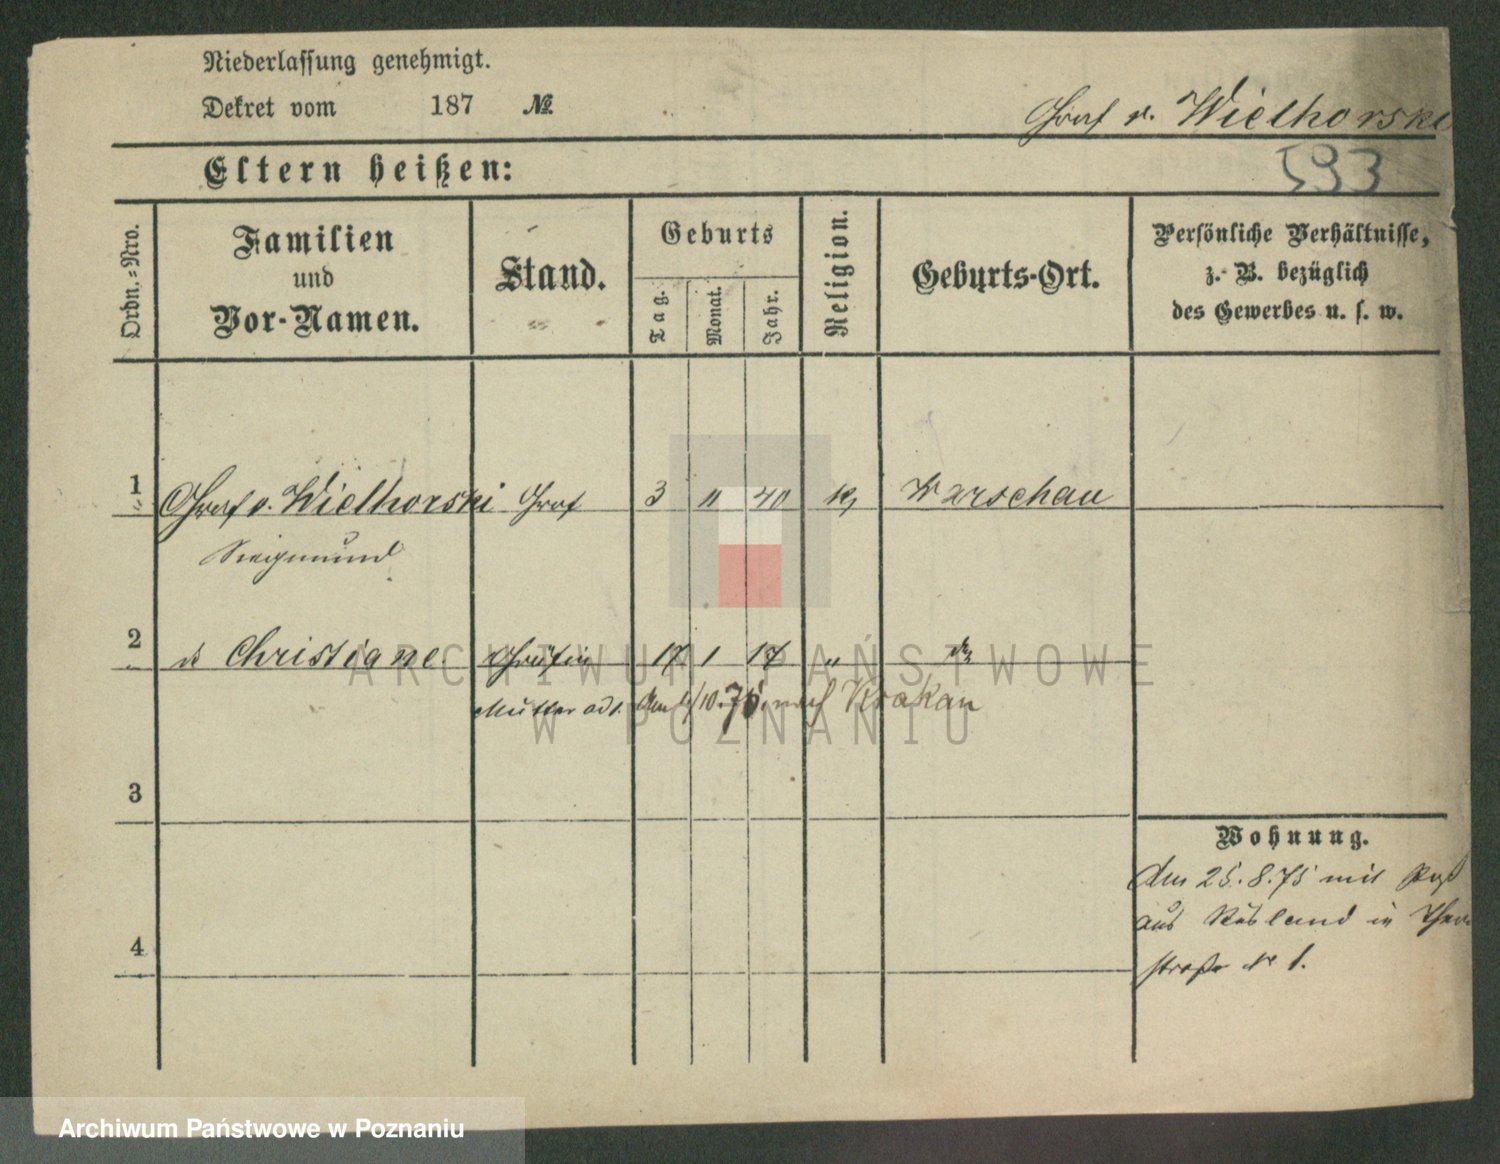 Niederlassung genehmigt.
Dekret vom 187 №
Graf v. Wielhorski
593
Eltern heißen:
Ordn.-Nro.
Familien
und
Vor-Namen.
Stand.
Geburts
Tag.
Monat.
Jahr.
Religion.
Geburts-Ort.
Persönliche Verhältnisse,
z. B. bezüglich
des Gewerbes u. s. w.
1 Graf v. Wielhorski Graf 3 11 40 Warschau
Sieigmund
2 Christiane Gräfin 17 1 17 "
ARCHIWUM PAŃSTWOWE
Mutter nach Krakau
W POZNANIU
3
Wohnung.
den 25.8.75 mit Paß
aus Rußland in
4
straße Nr 1.
Archiwum Państwowe w Poznaniu